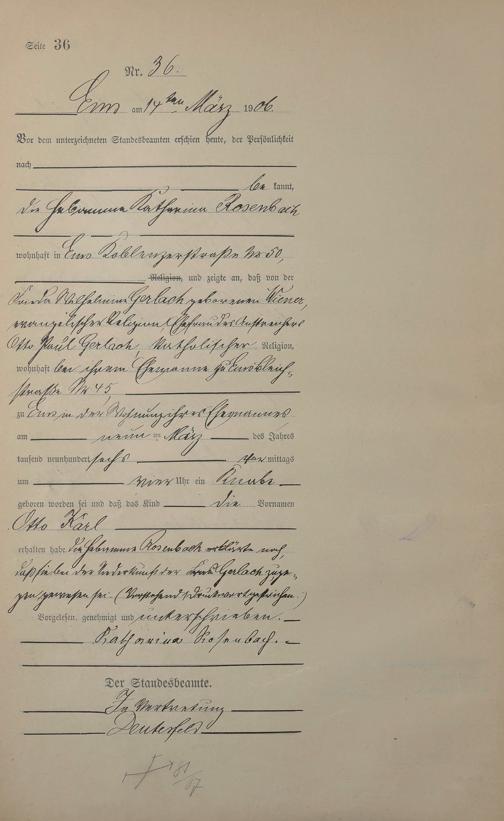 Seite 36
Nr. 36.
Ems am 14ten März 1906.
Vor dem unterzeichneten Standesbeamten erschien heute, der Persönlichkeit
nach
be kannt,
die Hebamme Katharina Rosenbach
wohnhaft in Ems Koblenzerstraße Nr 50,
Religion, und zeigte an, daß von der
Wilhelmine Gerlach geborenen Wiener,
evangelischer Religion, Ehefrau des Anstreichers
Otto Paul Gerlach, katholischer Religion,
wohnhaft bei ihrem Ehemanne zu Ems Bleich-
straße Nr 45
zu Ems in der Wohnung ihres Ehemannes
am neun ten März des Jahres
tausend neunhundert sechs vor mittags
um vier Uhr ein Knabe
geboren worden sei und daß das Kind die Vornamen
Otto Karl
erhalten habe. Die Hebamme Rosenbach erklärte noch,
daß sie bei der Niederkunft der Frau Gerlach zuge-
gen gewesen sei. (Vorstehend 1 Druckwort gestrichen.)
Vorgelesen, genehmigt und unterschrieben.
Katharina Rosenbach.
Der Standesbeamte.
In Vertretung